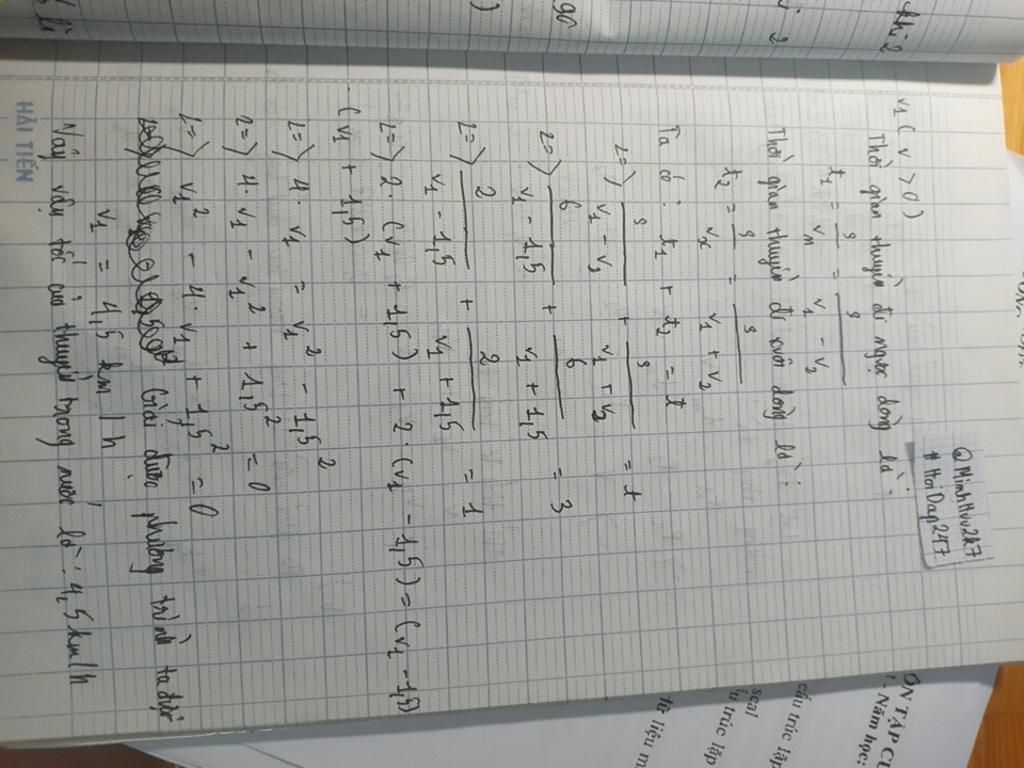 @MinhHvu2k7
#HoiDap247
v1 ( v > 0 )
Thời gian thuyền đi ngược dòng là :
t1 = s/vn = s/(v1 - v2)
Thời gian thuyền đi xuôi dòng là :
t2 = s/vx = s/(v1 + v2)
Ta có : t1 + t2 = t
<=> s/(v1 - v2) + s/(v1 + v2) = t
<=> 6/(v1 - 1,5) + 6/(v1 + 1,5) = 3
<=> 2/(v1 - 1,5) + 2/(v1 + 1,5) = 1
<=> 2 . (v1 + 1,5) + 2 . (v1 - 1,5) = (v1 - 1,5)
. (v1 + 1,5)
<=> 4 . v1 = v1² - 1,5²
<=> 4 . v1 - v1² + 1,5² = 0
<=> v1² - 4 . v1 + 1,5² = 0
Giải được phương trình ta được
v1 = 4,5 km/h
Vậy vận tốc của thuyền trong nước là : 4,5km/h
HẢI TIẾN
ÔN TẬP
Năm học:
cấu trúc lặp
scal
trúc lặp
từ liệu